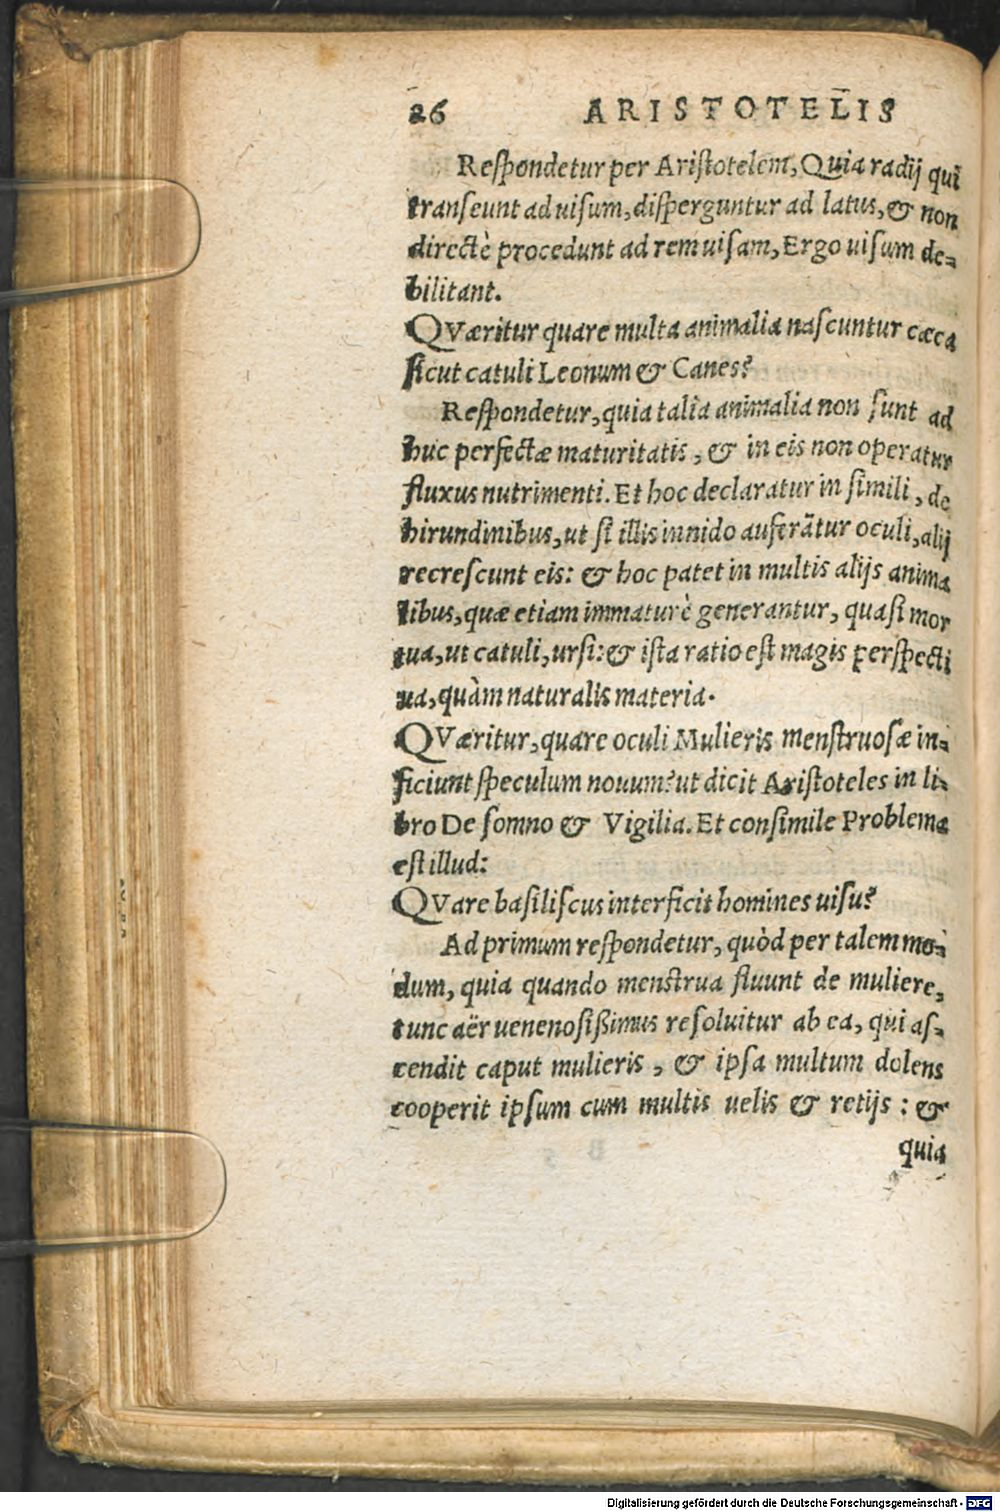 26 ARISTOTELIS
Respondetur per Aristotelem, Quia radij qui
transeunt ad uisum, disperguntur ad latus, & non
directè procedunt ad rem uisam, Ergo uisum de-
bilitant.
QVæritur quare multa animalia nascuntur cæca
sicut catuli Leonum & Canes?
Respondetur, quia talia animalia non sunt ad
huc perfectæ maturitatis, & in eis non operatur
fluxus nutrimenti. Et hoc declaratur in simili, de
hirundinibus, ut si illis in nido auferãtur oculi, alij
recrescunt eis: & hoc patet in multis alijs anima
libus, quæ etiam immaturè generantur, quasi mor
tua, ut catuli, ursi: & ista ratio est magis perspecti
ua, quàm naturalis materia.
QVæritur, quare oculi Mulieris menstruosæ in-
ficiunt speculum nouum? ut dicit Aristoteles in li-
bro De somno & Vigilia. Et consimile Problema
est illud:
QVare basiliscus interficit homines uisu?
Ad primum respondetur, quòd per talem mo-
dum, quia quando menstrua fluunt de muliere,
tunc aër uenenosißimus resoluitur ab ea, qui as-
cendit caput mulieris, & ipsa multum dolens
cooperit ipsum cum multis uelis & retijs: &
quia
Digitalisierung gefördert durch die Deutsche Forschungsgemeinschaft - DFG